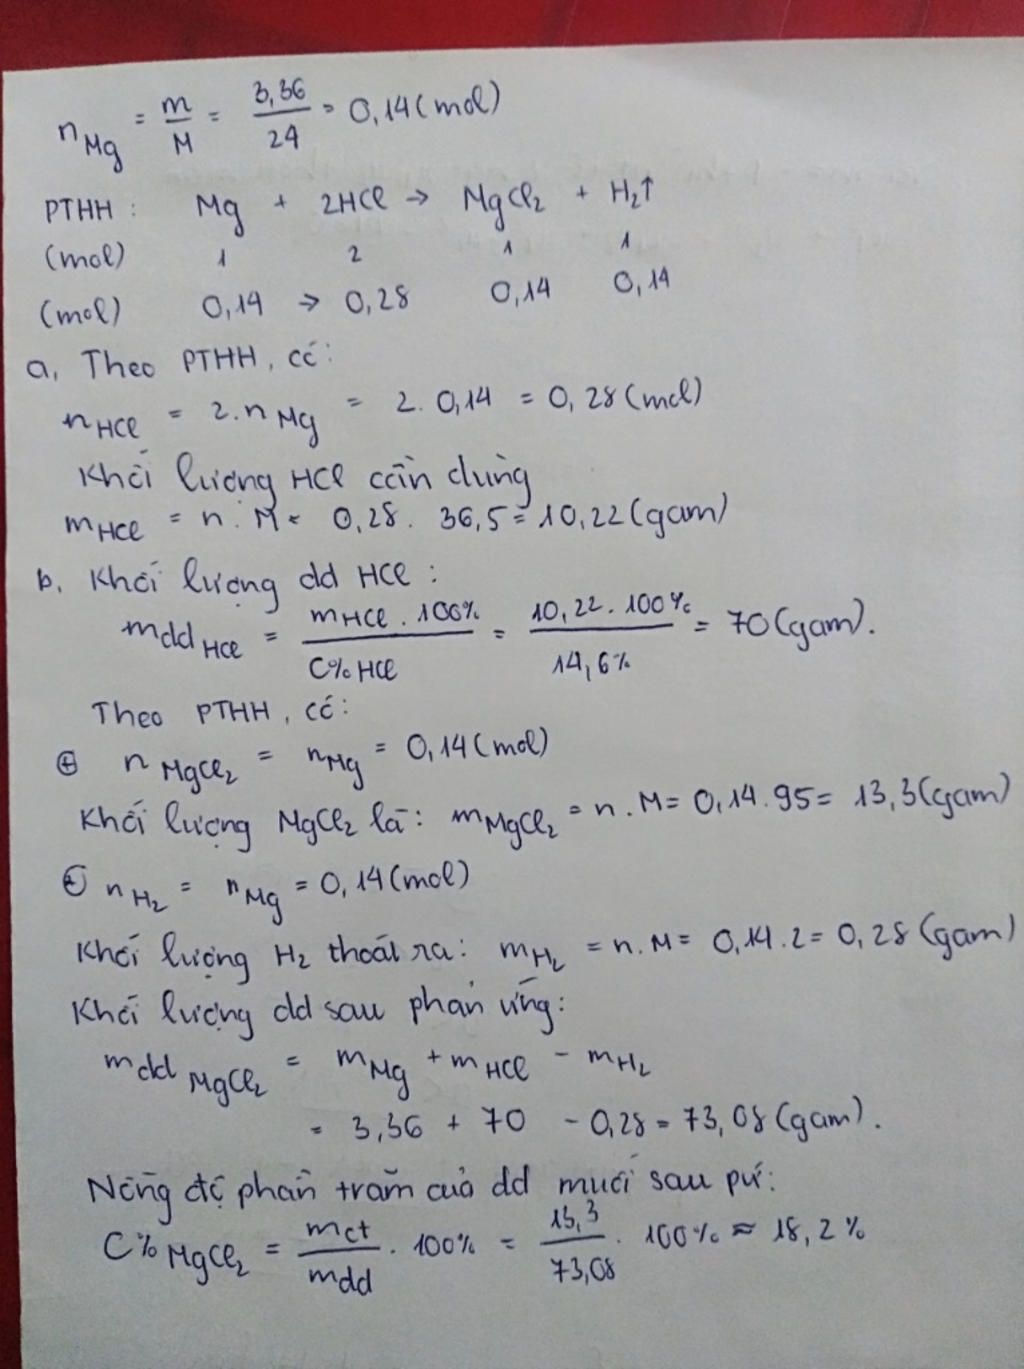 n_Mg = m/M = 3,36/24 = 0,14 (mol)
PTHH: Mg + 2HCl → MgCl₂ + H₂↑
(mol) 1 2 1 1
(mol) 0,14 → 0,28 0,14 0,14
a, Theo PTHH, có:
n_HCl = 2.n_Mg = 2.0,14 = 0,28 (mol)
Khối lượng HCl cần dùng
m_HCl = n.M = 0,28.36,5 = 10,22 (gam)
b. Khối lượng dd HCl:
mdd_HCl = m_HCl.100%/C%HCl = 10,22.100%/14,6% = 70 (gam).
Theo PTHH, có:
⊕ n_MgCl₂ = n_Mg = 0,14 (mol)
Khối lượng MgCl₂ là: m_MgCl₂ = n.M = 0,14.95 = 13,3 (gam)
⊕ n_H₂ = n_Mg = 0,14 (mol)
Khối lượng H₂ thoát ra: m_H₂ = n.M = 0,14.2 = 0,28 (gam)
Khối lượng dd sau phản ứng:
mdd_MgCl₂ = m_Mg + m_HCl - m_H₂
= 3,36 + 70 - 0,28 = 73,08 (gam).
Nồng độ phần trăm của dd muối sau pứ:
C%MgCl₂ = mct/mdd . 100% = 13,3/73,08 . 100% ≈ 18,2%